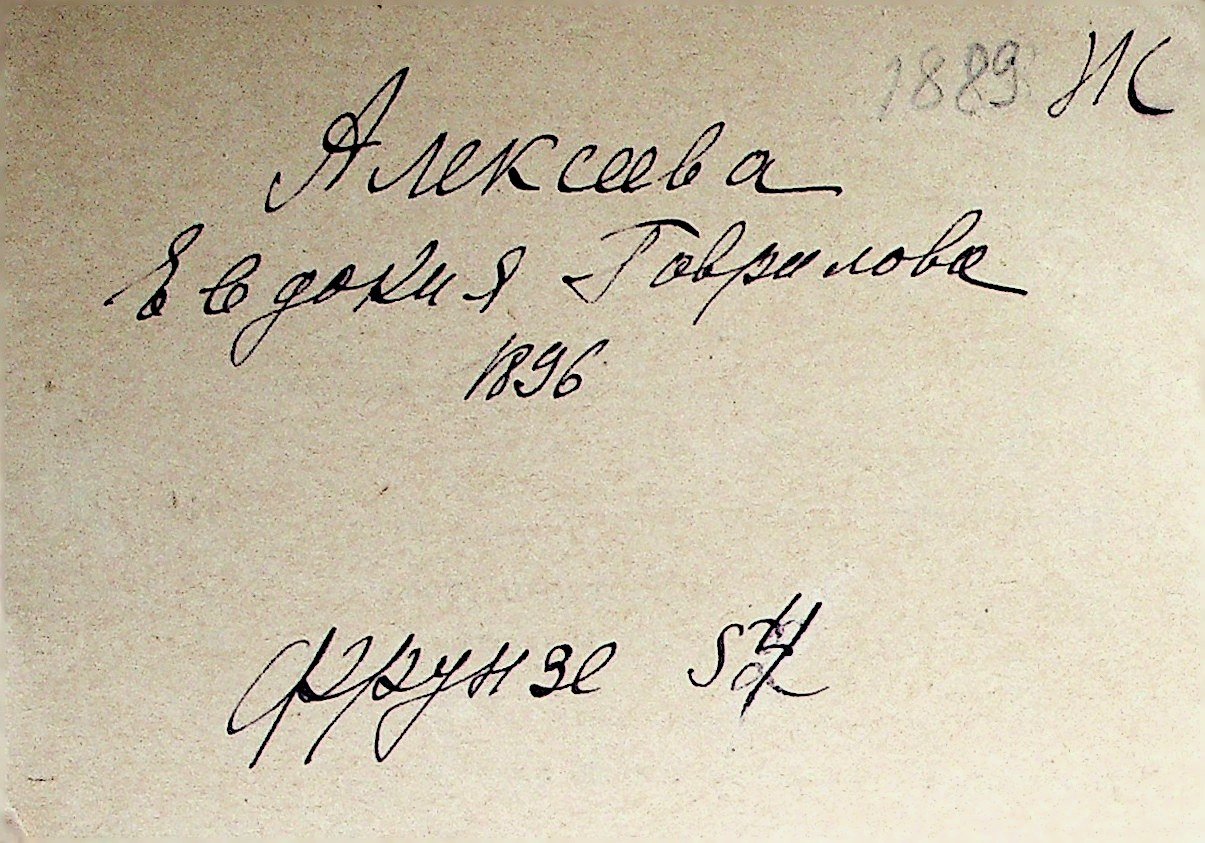 1889 Ж
Алексеева
Евдокия Гаврилова
1896
Фрунзе